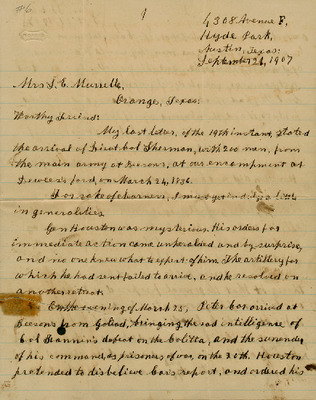 #6
1
4308 Avenue F,
Hyde Park,
Austin, Texas:
September 26, 1907
Mrs
Orange, Texas:
Worthy Friend:
My last letter, of the 19th instant, stated
the arrival of Lieut Col Sherman, with 200 men, from
the main army at Besons, at our encampment at
Dewees's ford, on March 24, 1836.
For sake of clearness, I must get a little
in generalities
Gen Houston was mysterious. His orders for
immediate action came unheralded and by surprise,
and no one knew what to expect of him. The artillery for
which he had sent failed to arrive, and he resolved on
another retreat.
On the evening of March 25, Peter Cor arrived at
Besons from Goliad, bringing the sad intelligence of
Col Fannin's defeat on the Colitta, and the surrender
of his command, as prisoners of war, on the 20th. Houston
pretended to disbelieve Cor's report, and ordered his